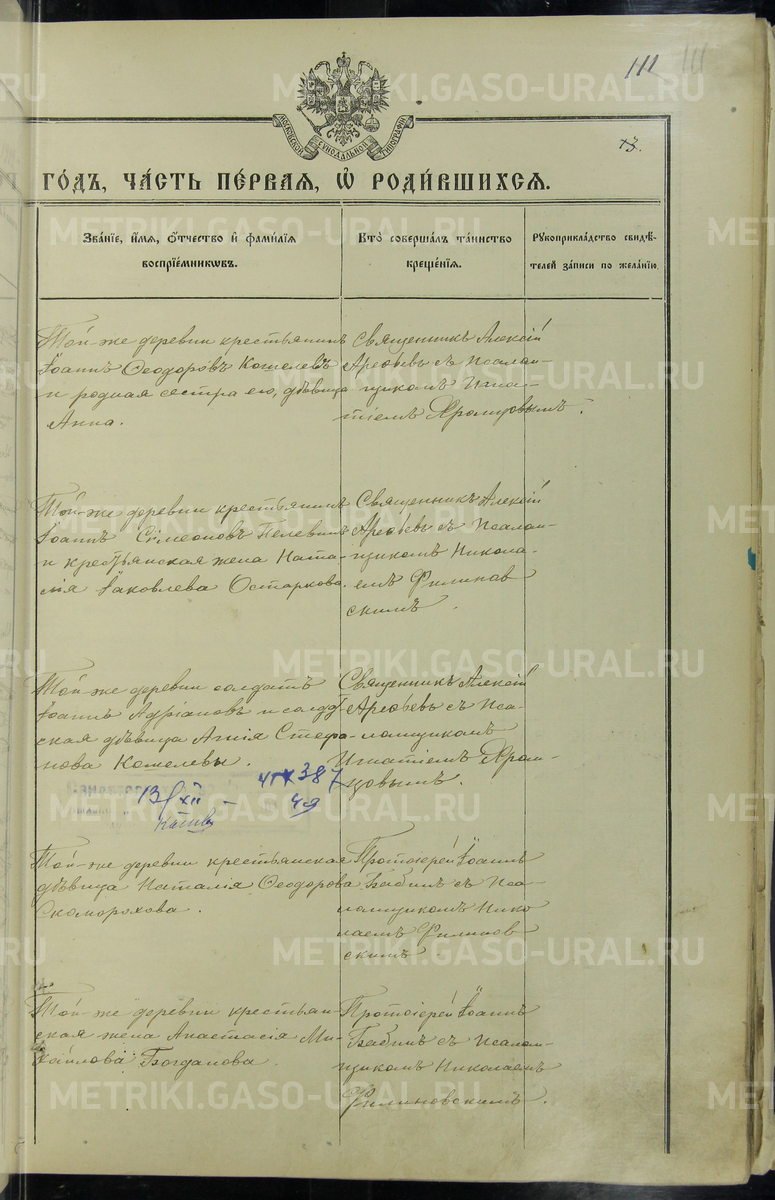 METRIKI.GASO-URAL.RU
111 111
МОСКОВСКОЙ СѴНОДАЛЬНОЙ ТИПОГРАФІИ
13.
ГО́ДЪ, ЧА́СТЬ ПЕ́РВАЯ, Ѽ РОДИ́ВШИХСЯ.
Зва́ніе, и́мя, ѻ́тчество и҆ фами́лія воспріе́мникѡвъ.
Кто̀ соверша́лъ та́инство креще́нія.
Рукоприкла́дство свидѣ́телей за́писи по жела́нію.
Той-же деревни крестьянинъ
Іоаннъ Ѳеодоровъ Кошелевъ
и родная сестра его, дѣвица
Анна.
Священникъ Алексій
Арефьевъ съ псалом-
щикомъ Игна-
тіемъ Хромцовымъ.
Той-же деревни крестьянинъ
Іоаннъ Симеоновъ Пелевинъ
и крестьянская жена Ната-
лія Іаковлева Остаркова.
Священникъ Алексій
Арефьевъ съ псалом-
щикомъ Никола-
емъ Филинов
скимъ.
Той-же деревни солдатъ
Іоаннъ Адріановъ и солдат
ская дѣвица Агнія Стефа-
нова Кошелевы.
Священникъ Алексій
Арефьевъ съ пса-
ломщикомъ
Игнатіемъ Хром-
цовымъ.
13/XII – 387
49
Той-же деревни крестьянская
дѣвица Наталія Ѳеодорова
Скоморохова.
Протоіерей Іоаннъ
Бабинъ съ пса-
ломщикомъ Нико
лаемъ Филинов
скимъ.
Той-же деревни крестьян
ская жена Анастасія Ми-
хаилова Богданова.
Протоіерей Іоаннъ
Бабинъ съ псалом-
щикомъ Николаемъ
Филиновскимъ.